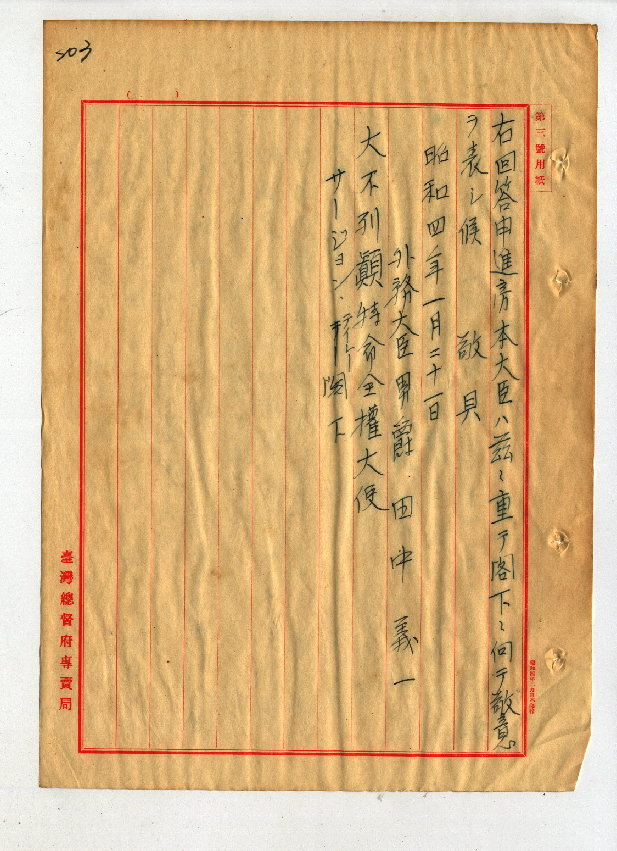 503
第三號用紙
右回答申進旁本大臣ハ茲ニ重テ閣下ニ向テ敬意
ヲ表シ候 敬具
昭和四年一月二十一日
外務大臣男爵 田中義一
大不列顛特命全權大使
サー・ジョン・ティレー閣下
臺灣總督府專賣局